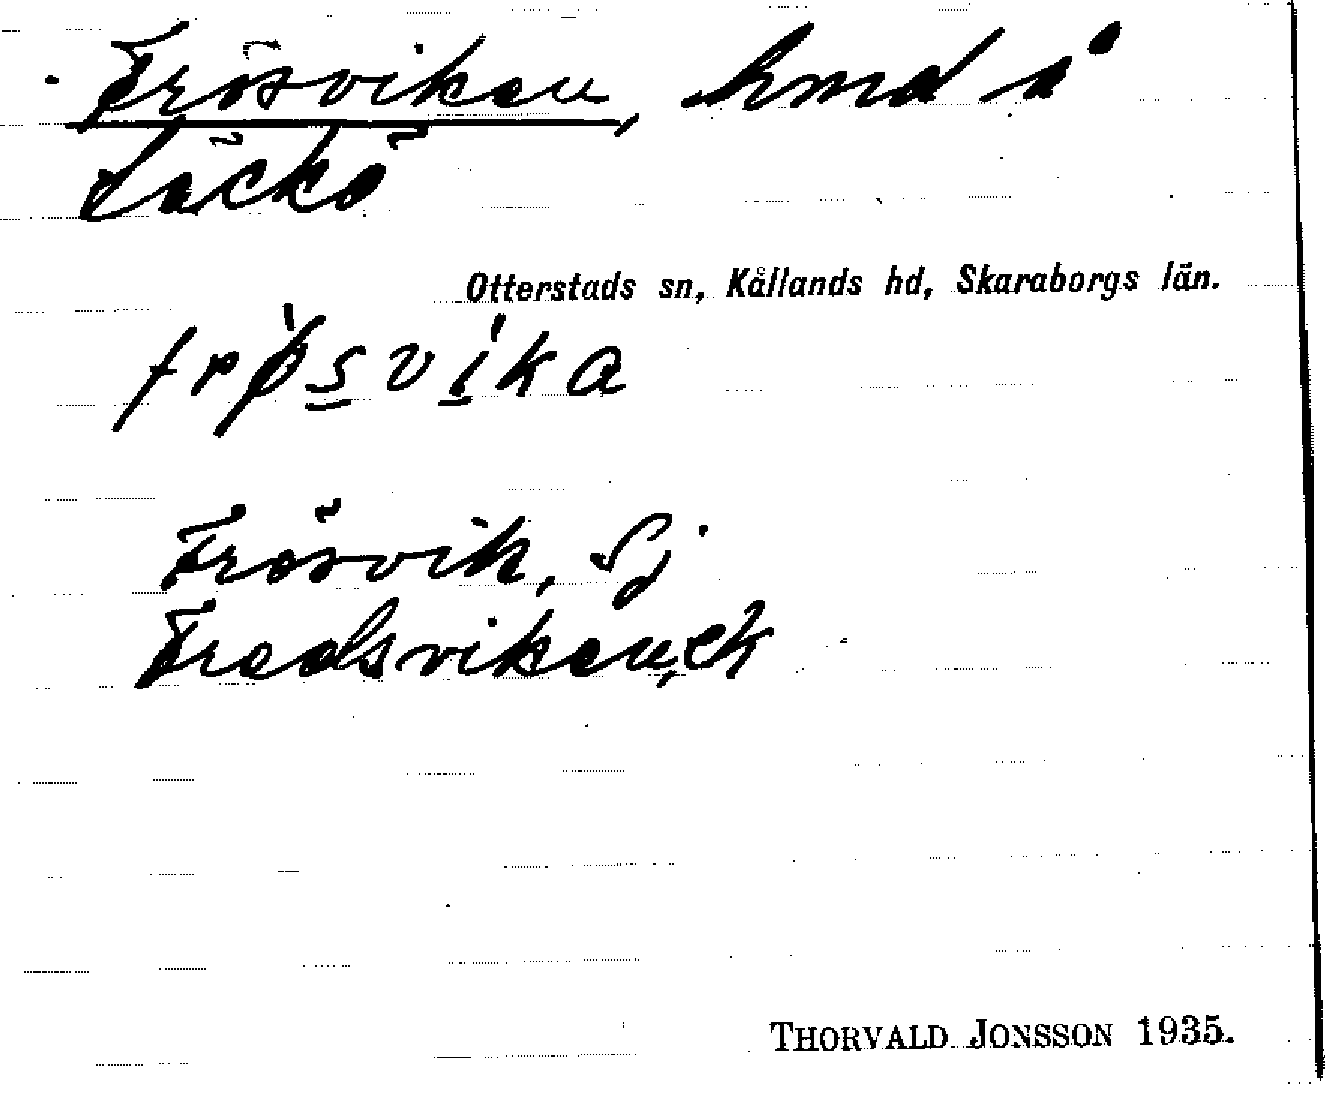 Frösviken, hmd å
Läckö
Otterstads sn, Kållands hd, Skaraborgs län.
frøsvika
Frösvik, Sj
Fredsviken, ek
THORVALD JONSSON 1935.